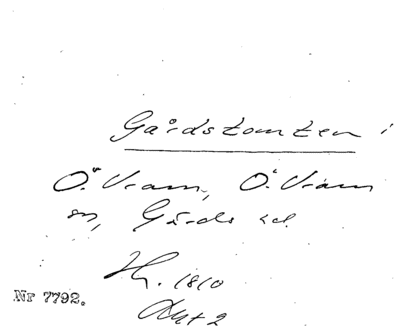 Gårdstomten i
Ö. Vram, Ö. Vram
sn, Gärds hd.
Hr. 1810
Akt 2
Nr 7792.